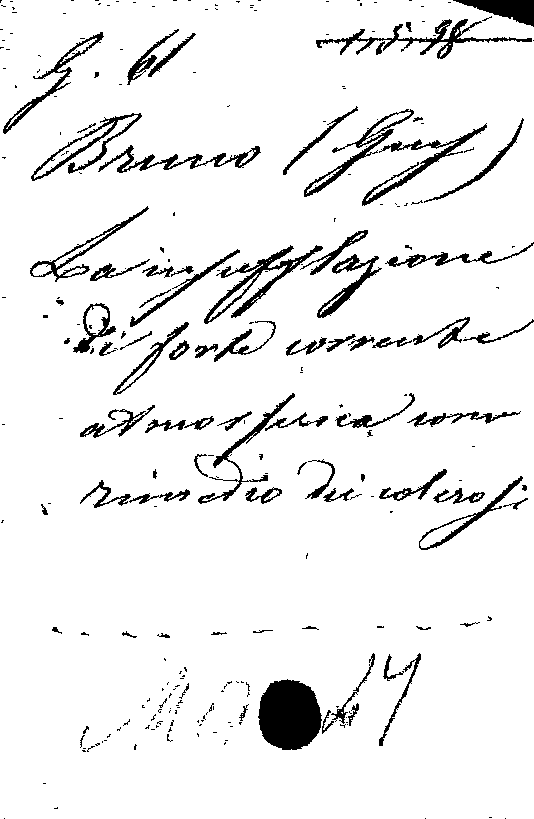 G. 61
1,5,98
Bruno (Giu)
La insufflazione
di forte corrente
atmosferica come
rimedio dei colerosi